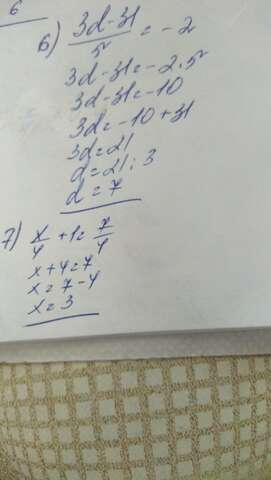 6
6) (3d-31)/5 = -2
3d-31=-2·5
3d-31=-10
3d=-10+31
3d=21
d=21:3
d=7
7) x/4 +1= 7/4
x+4=7
x=7-4
x=3